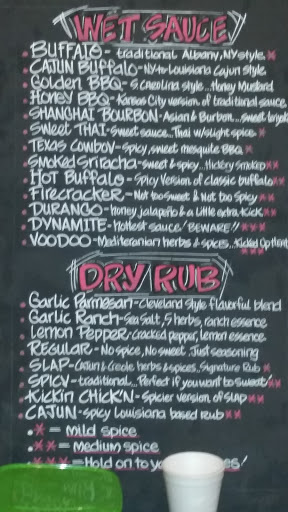 WET SAUCE
BUFFALO - traditional Albany, NY style *
CAJUN Buffalo - NY to Louisiana Cajun style
Golden BBQ - S. Carolina style... Honey Mustard
Honey BBQ - Kansas City version of traditional sauce
SHANGHAI BOURBON - Asian & Burbon... sweet
Sweet THAI - Sweet sauce.. Thai w/slight spice *
TEXAS COWBOY - Spicy, sweet mesquite BBQ *
Smoked Sriracha - sweet & spicy... Hickory smoked **
Hot Buffalo - Spicy Version of classic buffalo **
Firecracker - Not too sweet & Not too Spicy **
DURANGO - honey, jalapeño & a little extra kick **
DYNAMITE - Hottest sauce! BEWARE!! ***
VOODOO - Mediteranian herbs & spices... Kicked Up
DRY RUB
Garlic Parmesan - Cleveland Style flavorful blend
Garlic Ranch - Sea Salt, 5 herbs, ranch essence
Lemon Pepper - Cracked pepper, lemon essence
REGULAR - No Spice, No sweet. Just seasoning
SLAP - Cajun & Creole herbs & spices, Signature Rub *
SPICY - traditional... Perfect if you want to sweat! **
Kickin CHICK'N - Spicier version of slap **
CAJUN - Spicy Louisiana based rub **
* = mild spice
** = Medium spice
*** = Hold on to